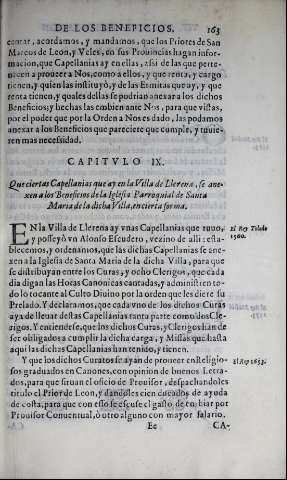 DE LOS BENEFICIOS. 163
centar, acordamos, y mandamos, que los Priores de San
Marcos de Leon, y Veles, en sus Prouincias hagan infor-
macion, que Capellanias ay en ellas, assi de las que perte-
necen a proueer a Nos, como a ellos, y que renta, y cargo
tienen, y quien las instituyò, y de las Ermitas que ay, y que
renta tienen, y quales dellas se podrian anexar a los dichos
Beneficios; y hechas las embien ante Nos, para que vistas,
por el poder que por la Orden a Nos es dado, las podamos
anexar a los Beneficios que pareciere que cumple, y tuuie-
ren mas necessidad.
CAPITVLO IX.
Que ciertas Capellanias que ay en la Villa de Llerena, se ane-
xen a los Beneficios de la Iglesia Parroquial de Santa
Maria de la dicha Villa, en cierta forma.
EN la Villa de Llerena ay vnas Capellanias que tuuo,
y posseyò vn Alonso Escudero, vezino de alli: esta-
blecemos, y ordenamos, que las dichas Capellanias se ane-
xen a la Iglesia de Santa Maria de la dicha Villa, para que
se distribuyan entre los Curas, y ocho Clerigos, que cada
dia digan las Horas Canonicas cantadas, y administren to-
do lo tocante al Culto Diuino por la orden que les diere su
Prelado. Y declaramos, que cada vno de los dichos Curas
aya de lleuar destas Capellanias tanta parte como dos Cle-
rigos. Y entiendese, que los dichos Curas, y Clerigos han de
ser obligados a cumplir la dicha carga, y Missas que hasta
aqui las dichas Capellanias han tenido, y tienen.
El Rey
Toledo
1560.
Y que los dichos Curatos se ayan de proueer en Religio-
sos graduados en Canones, con opinion de buenos Letra-
dos, para que siruan el oficio de Prouisor, despachandoles
titulo el Prior de Leon, y dandoles cien ducados de ayuda
de costa, para que con esto se escuse el gasto de embiar por
Prouisor Conuentual, ò otro alguno con mayor salario.
El Rey 1653.
Ee CA-